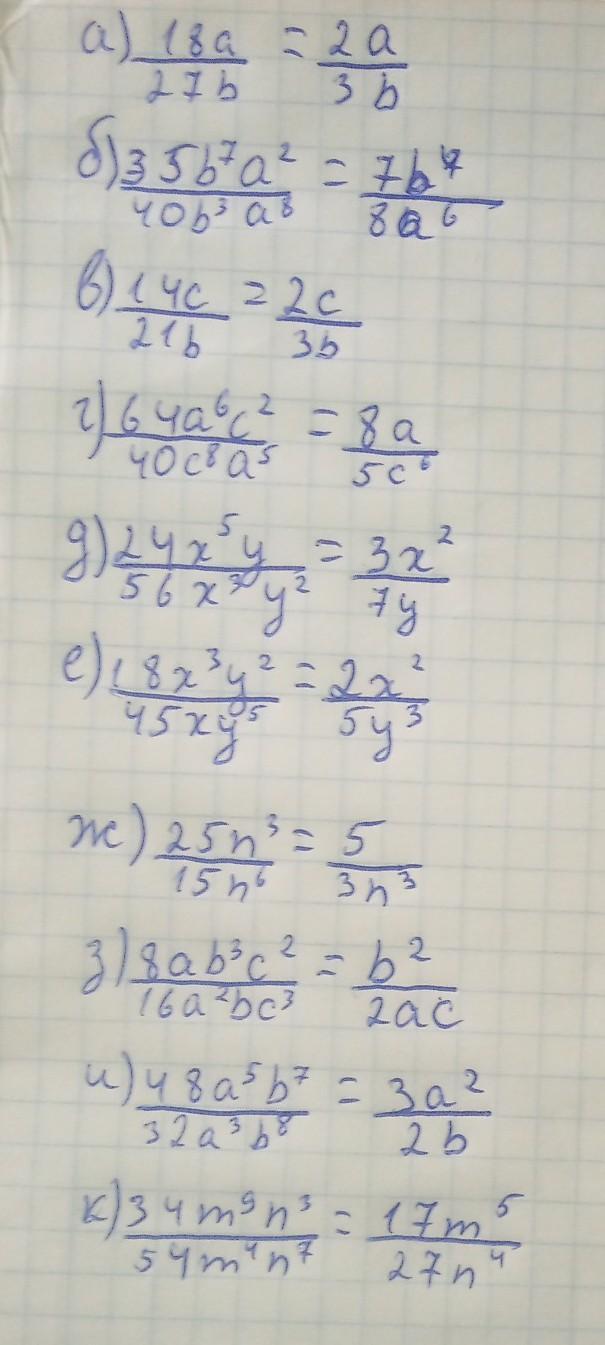 а) 18a/27b = 2a/3b
б) 35b⁷a²/40b³a⁸ = 7b⁴/8a⁶
в) 14c/21b = 2c/3b
г) 64a⁶c²/40c⁸a⁵ = 8a/5c⁶
д) 24x⁵y/56x³y² = 3x²/7y
е) 18x³y²/45xy⁵ = 2x²/5y³
ж) 25n³/15n⁶ = 5/3n³
з) 8ab³c²/16a²bc³ = b²/2ac
и) 48a⁵b⁷/32a³b⁸ = 3a²/2b
к) 34m⁹n³/54m⁴n⁷ = 17m⁵/27n⁴